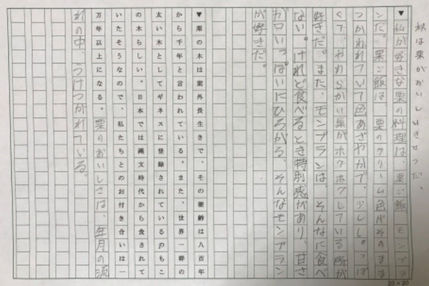 私は栗がおいしいきせつだ。
▼私が好きな栗の料理は、栗ご飯、モンブラ
ンだ。栗ご飯は、栗のクリーム色がそのまま
つかわれていて色あざやかで、少し
くて、やわらかい栗がホクホクしている所が
好きだ。また、モンブランは、そんなに食べ
ない。けれど食べるとき特別感があり、甘さ
が口いっぱいにひろがる、そんなモンブラン
が好きだ。
▼栗の木は案外長生きで、その樹齢は八百年
から千年と言われている。また、世界一幹の
太い木としてギネスに登録されているのもこ
の木らしい。日本では縄文時代から食されて
いたそうなので、私たちとのお付き合いは一
万年以上になる。栗のおいしさは、年月の流
れの中、うけつがれている。
20×20